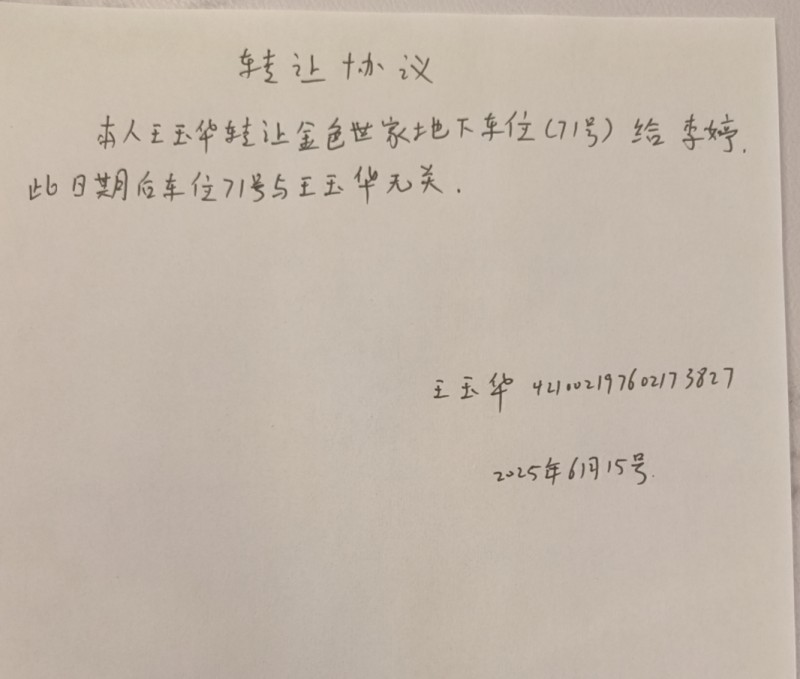 转让协议
本人王玉华转让金色世家地下车位(71号)给李婷.
此日期后车位71号与王玉华无关.
王玉华 421002197602173827
2025年6月15号.